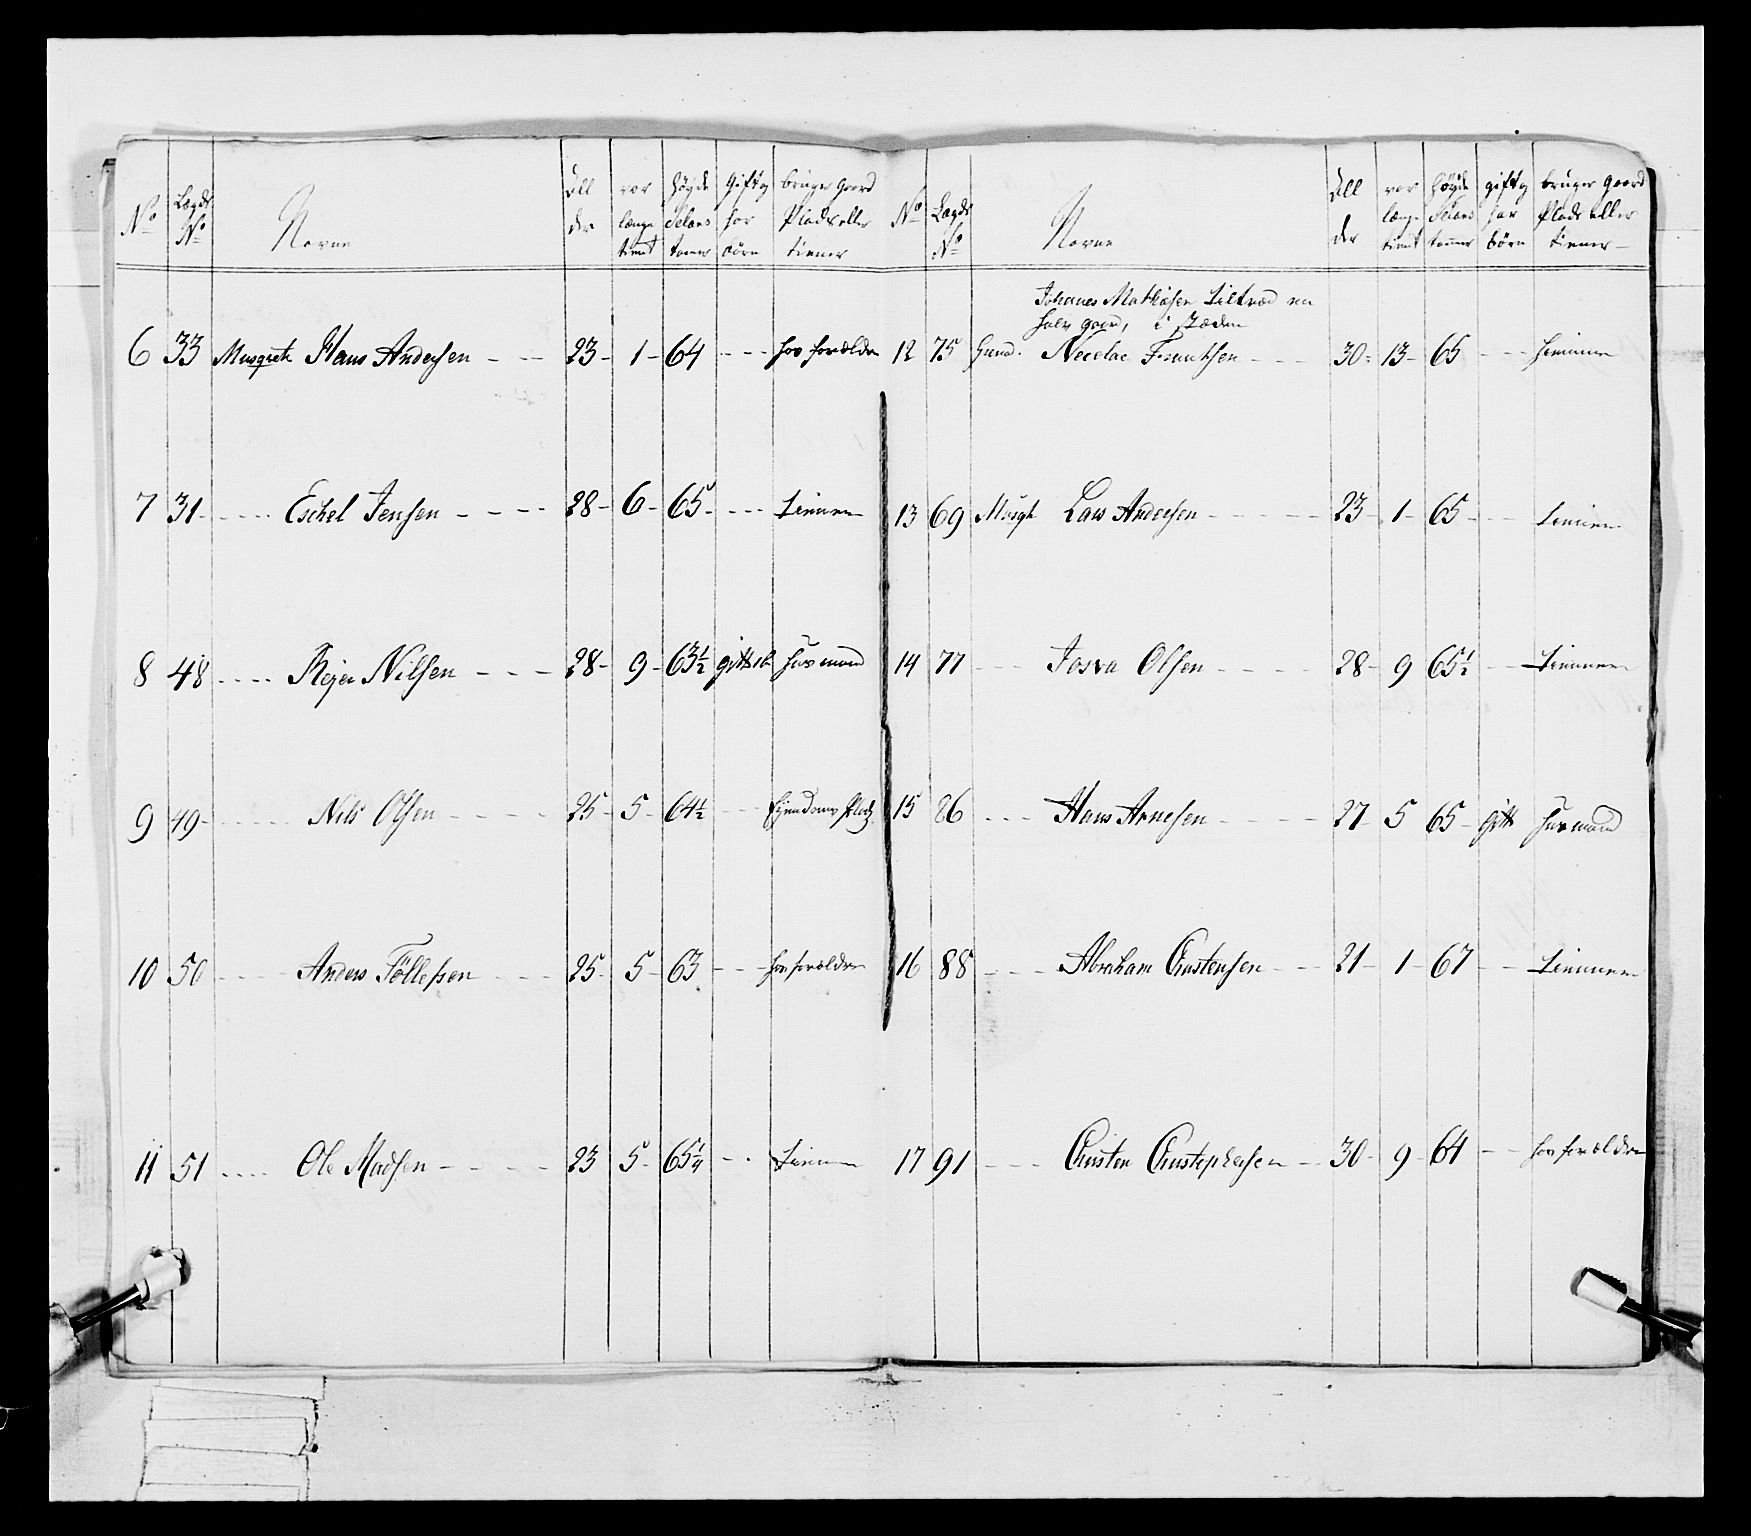 No Lægds No Navne All der vor længe tient Høyde Selans tomer Gift og har börn bruger Gaard Plads eller tiener
6 33 Musqvete Hans Andersen - - 23 - 1 - 64 - - - hos forældre
7 31 - - - - Eschel Jensen - - - - 28 - 6 - 65 - - - - tienner
8 48 - - - - Rejer Nilsen - - - 28 - 9 - 63 1/2 gift husmand
9 49 - - - - - Nils Olsen - - - - 25 - 5 - 64 1/2 - - -
10 50 - - - - Anders Föllesen - - - 25 - 5 - 63 - - - hos forældre
11 51 - - - - Ole Madsen - - - - - 23 5 - 65 1/4 - - - tienner
No Lægds No Navne All der vor længe tient höyde Selans tomer gift og har börn bruger Gaard Plads eller tiener
Johanes Mathiasen
halv gaard, i stæden
12 75 30 - 13 - 65 - - -
13 69 Lars Andersen - - - - - 23 - 1 - 65 - - - tienner
14 77 - - - Josva Olsen - - - - 28 - 9 65 1/2 - - tienner
15 86 - - - Hans Arnesen - - - - - 27 - 5 65 - gift husmand
16 88 - - - Abraham Christensen - - - 21 - 1 - 67 - - tienner
17 91 - - - Christen Christophersen - - 30 - 9 - 64 - - hos forældre